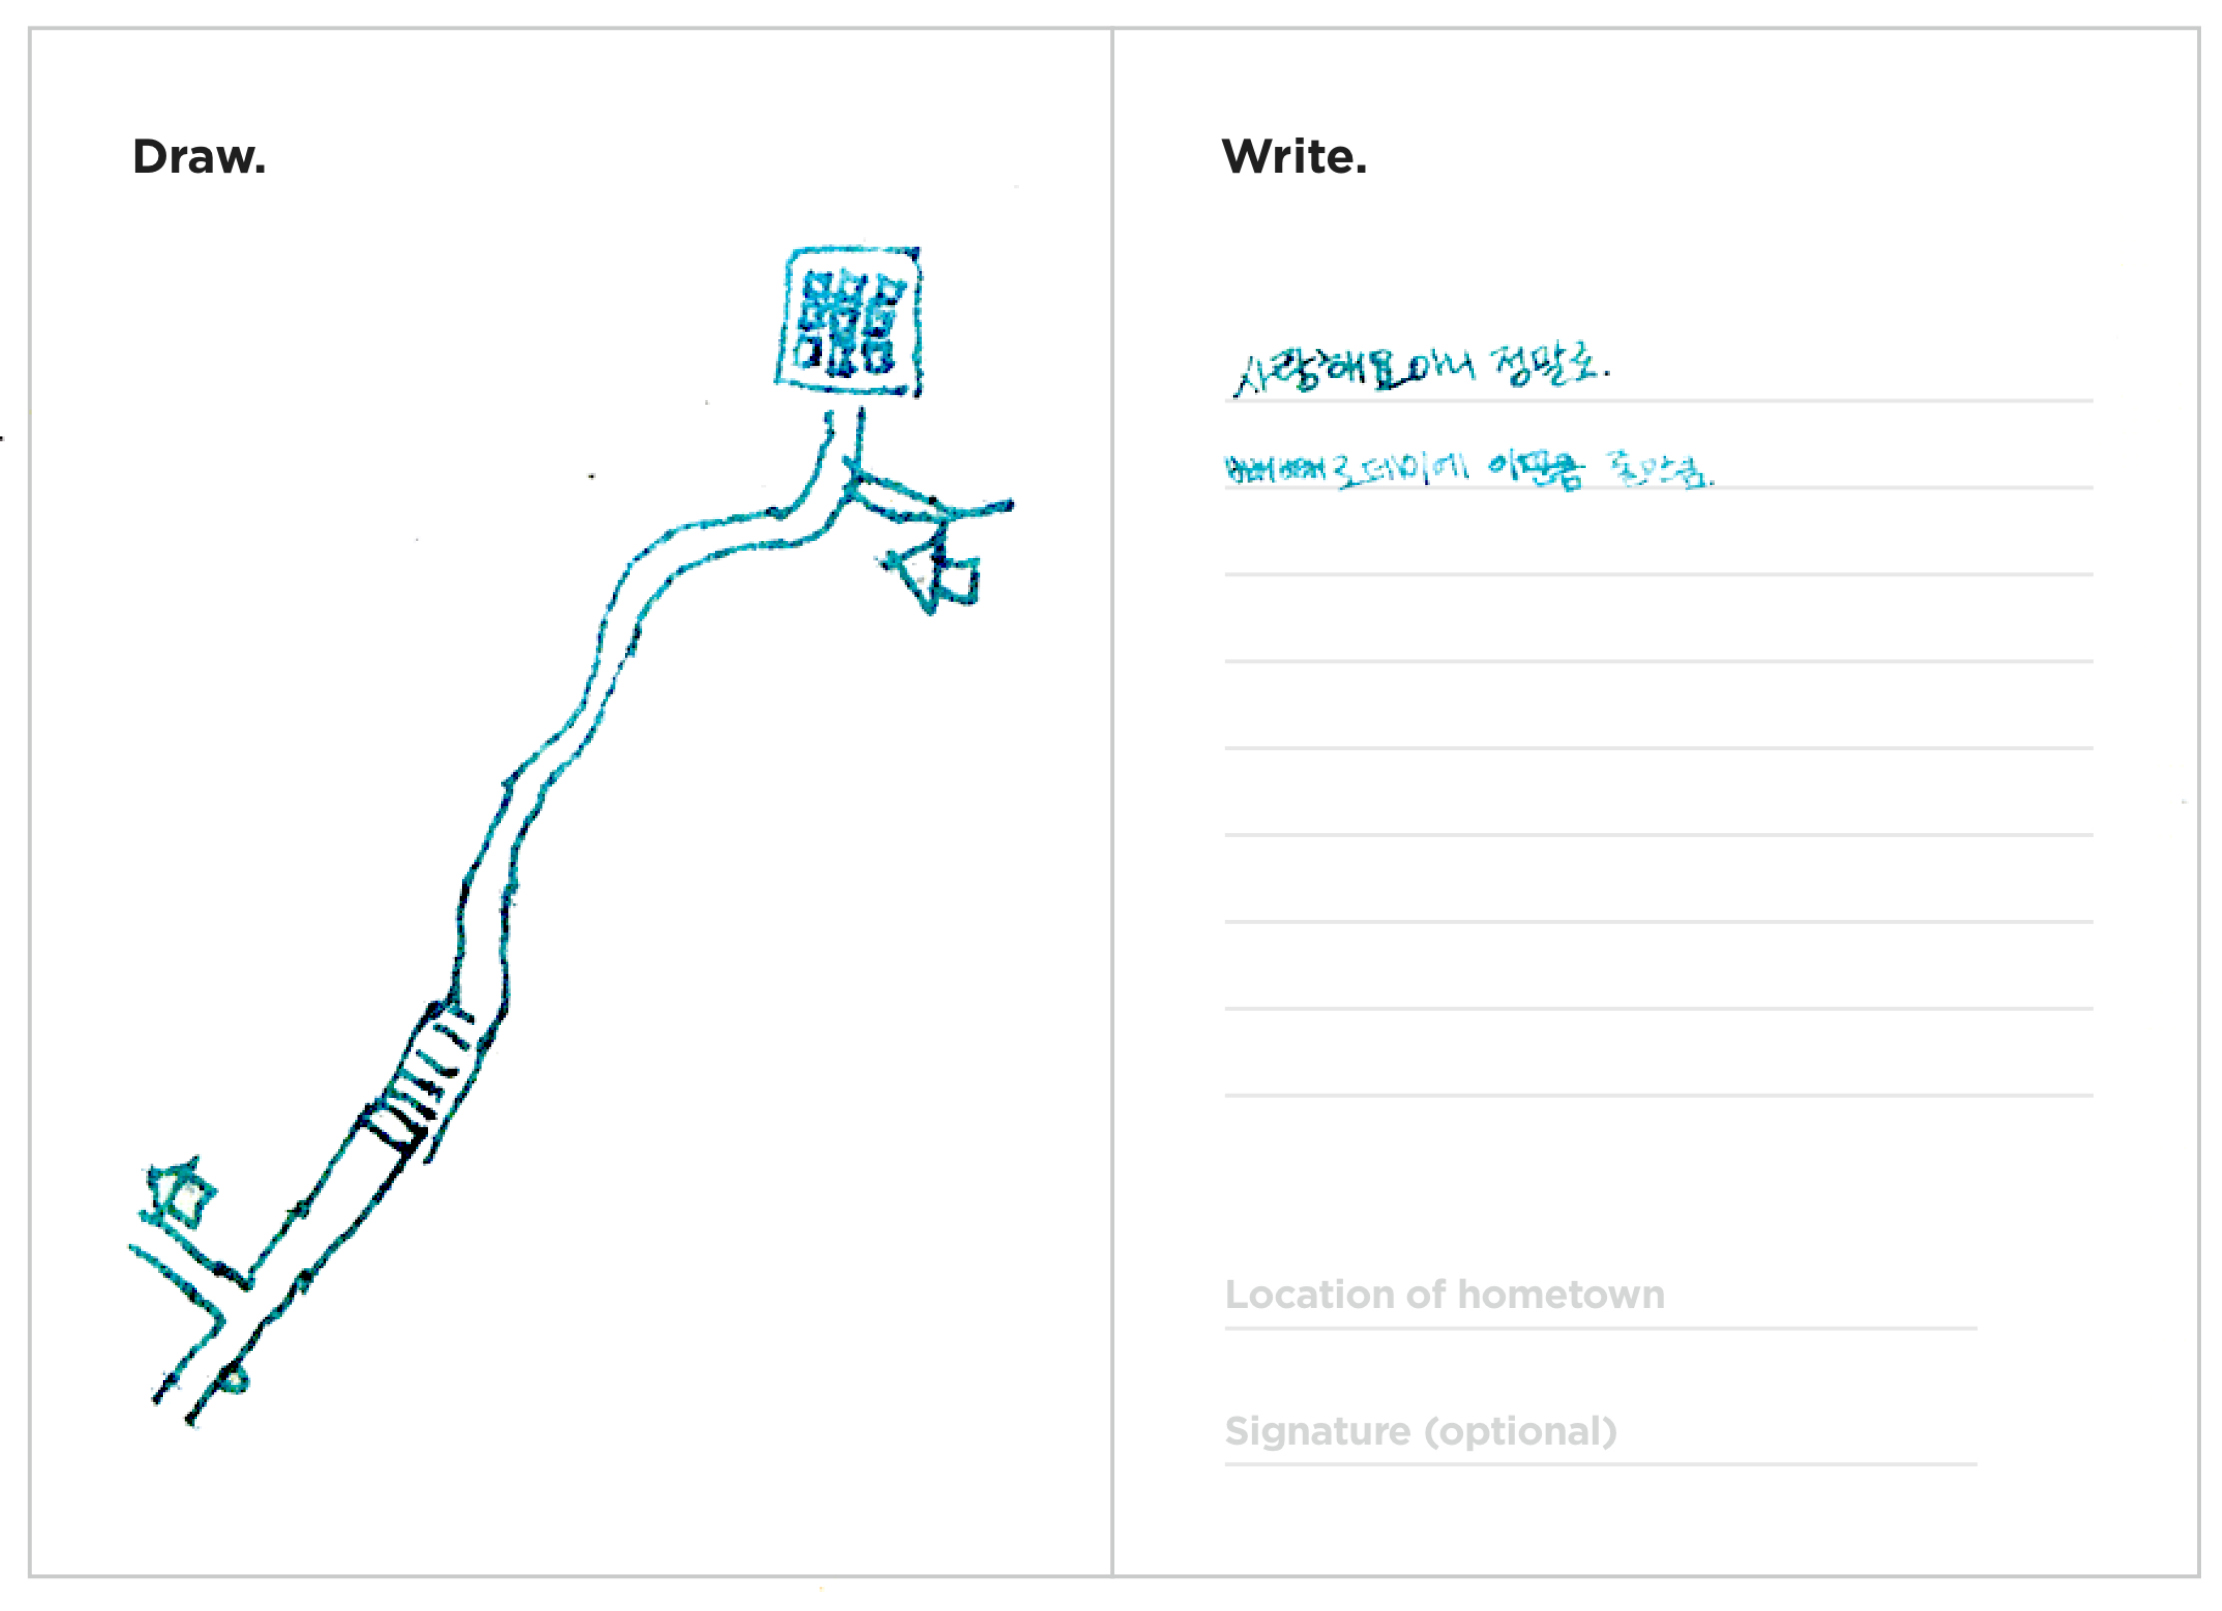 Draw.
Write.
사랑해요 아니 정말로.
빼빼로데이에 이만큼
Location of hometown
Signature (optional)